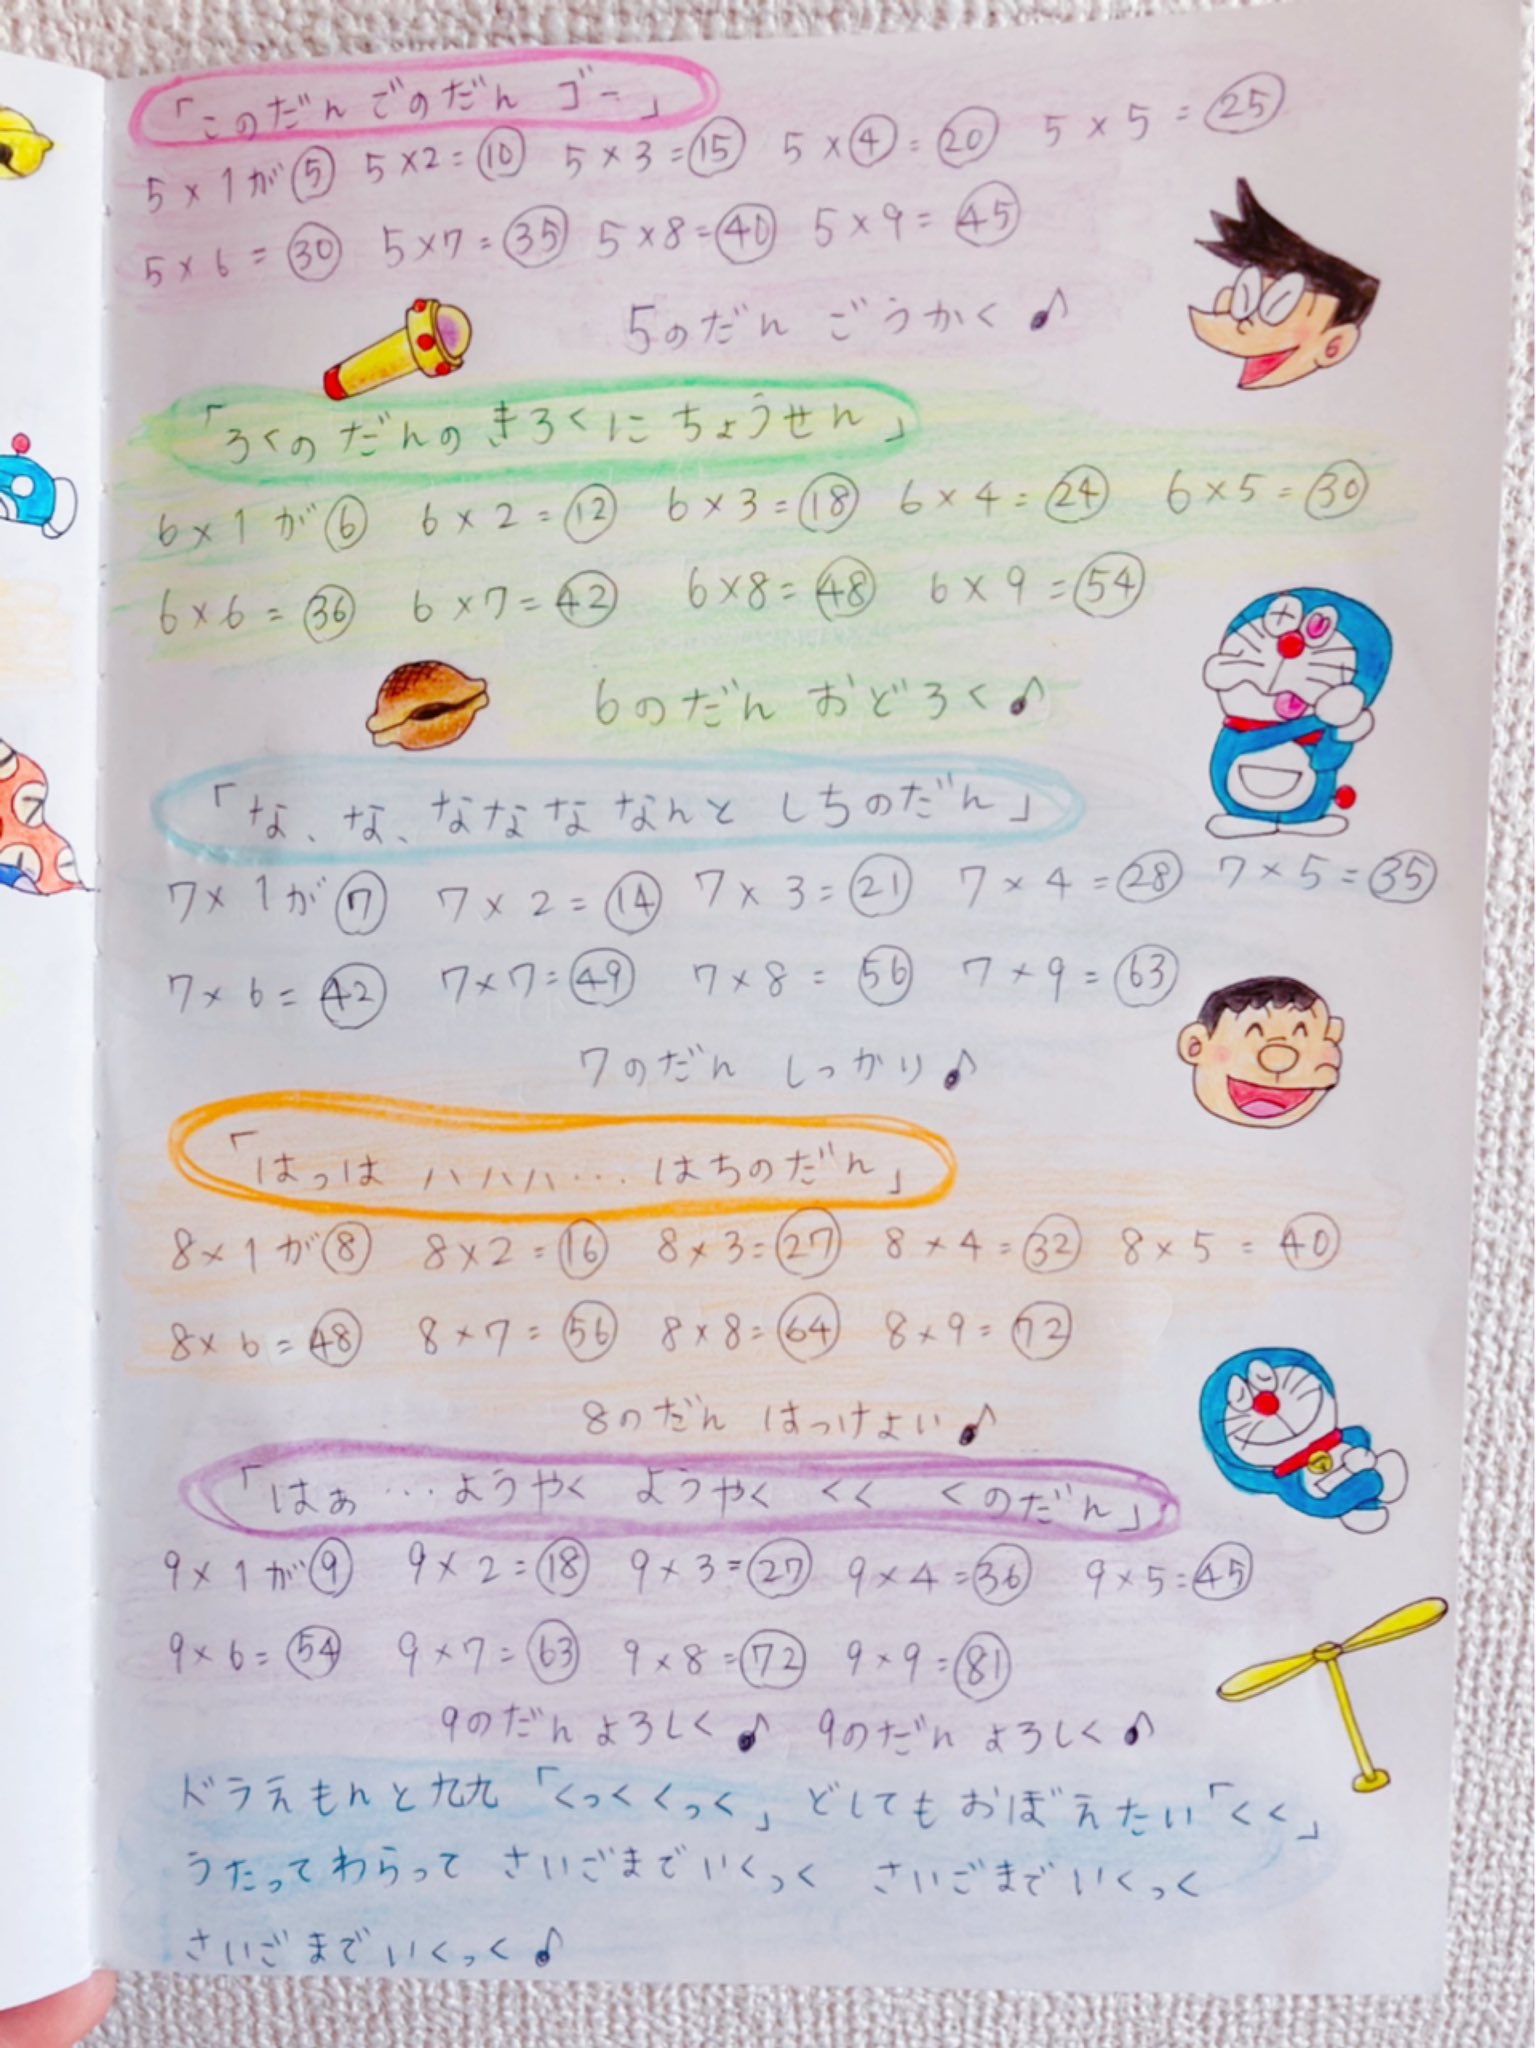 「このだん ごのだん ゴー」
5×1が⑤ 5×2=⑩ 5×3=⑮ 5×④=⑳ 5×5=㉕
5×6=㉚ 5×7=㉟ 5×8=㊵ 5×9=㊺
5のだん ごうかく♪
「ろくのだんの きろくに ちょうせん」
6×1が⑥ 6×2=⑫ 6×3=⑱ 6×4=㉔ 6×5=㉚
6×6=㊱ 6×7=㊷ 6×8=㊽ 6×9=54
6のだん おどろく♪
「な、な、ななな なんと しちのだん」
7×1が⑦ 7×2=⑭ 7×3=㉑ 7×4=㉘ 7×5=㉟
7×6=㊷ 7×7=㊾ 7×8=56 7×9=63
7
7のだん しっかり♪
「はっは ハハハ… はちのだん」
8×1が⑧ 8×2=⑯ 8×3=㉗ 8×4=㉜ 8×5=㊵
8×6=㊽ 8×7=56 8×8=64 8×9=72
8のだん はっけよい♪
「はぁ…ようやく ようやく くく くのだん」
9×1が⑨ 9×2=⑱ 9×3=㉗ 9×4=㊱ 9×5=㊺
9×6=54 9×7=63 9×8=72 9×9=81
9のだん よろしく♪ 9のだん よろしく♪
ドラえもんと九九「くっくくっく」どしてもおぼえたい「くく」
うたってわらって さいごまでいくっく さいごまでいくっく
さいごまでいくっく♪